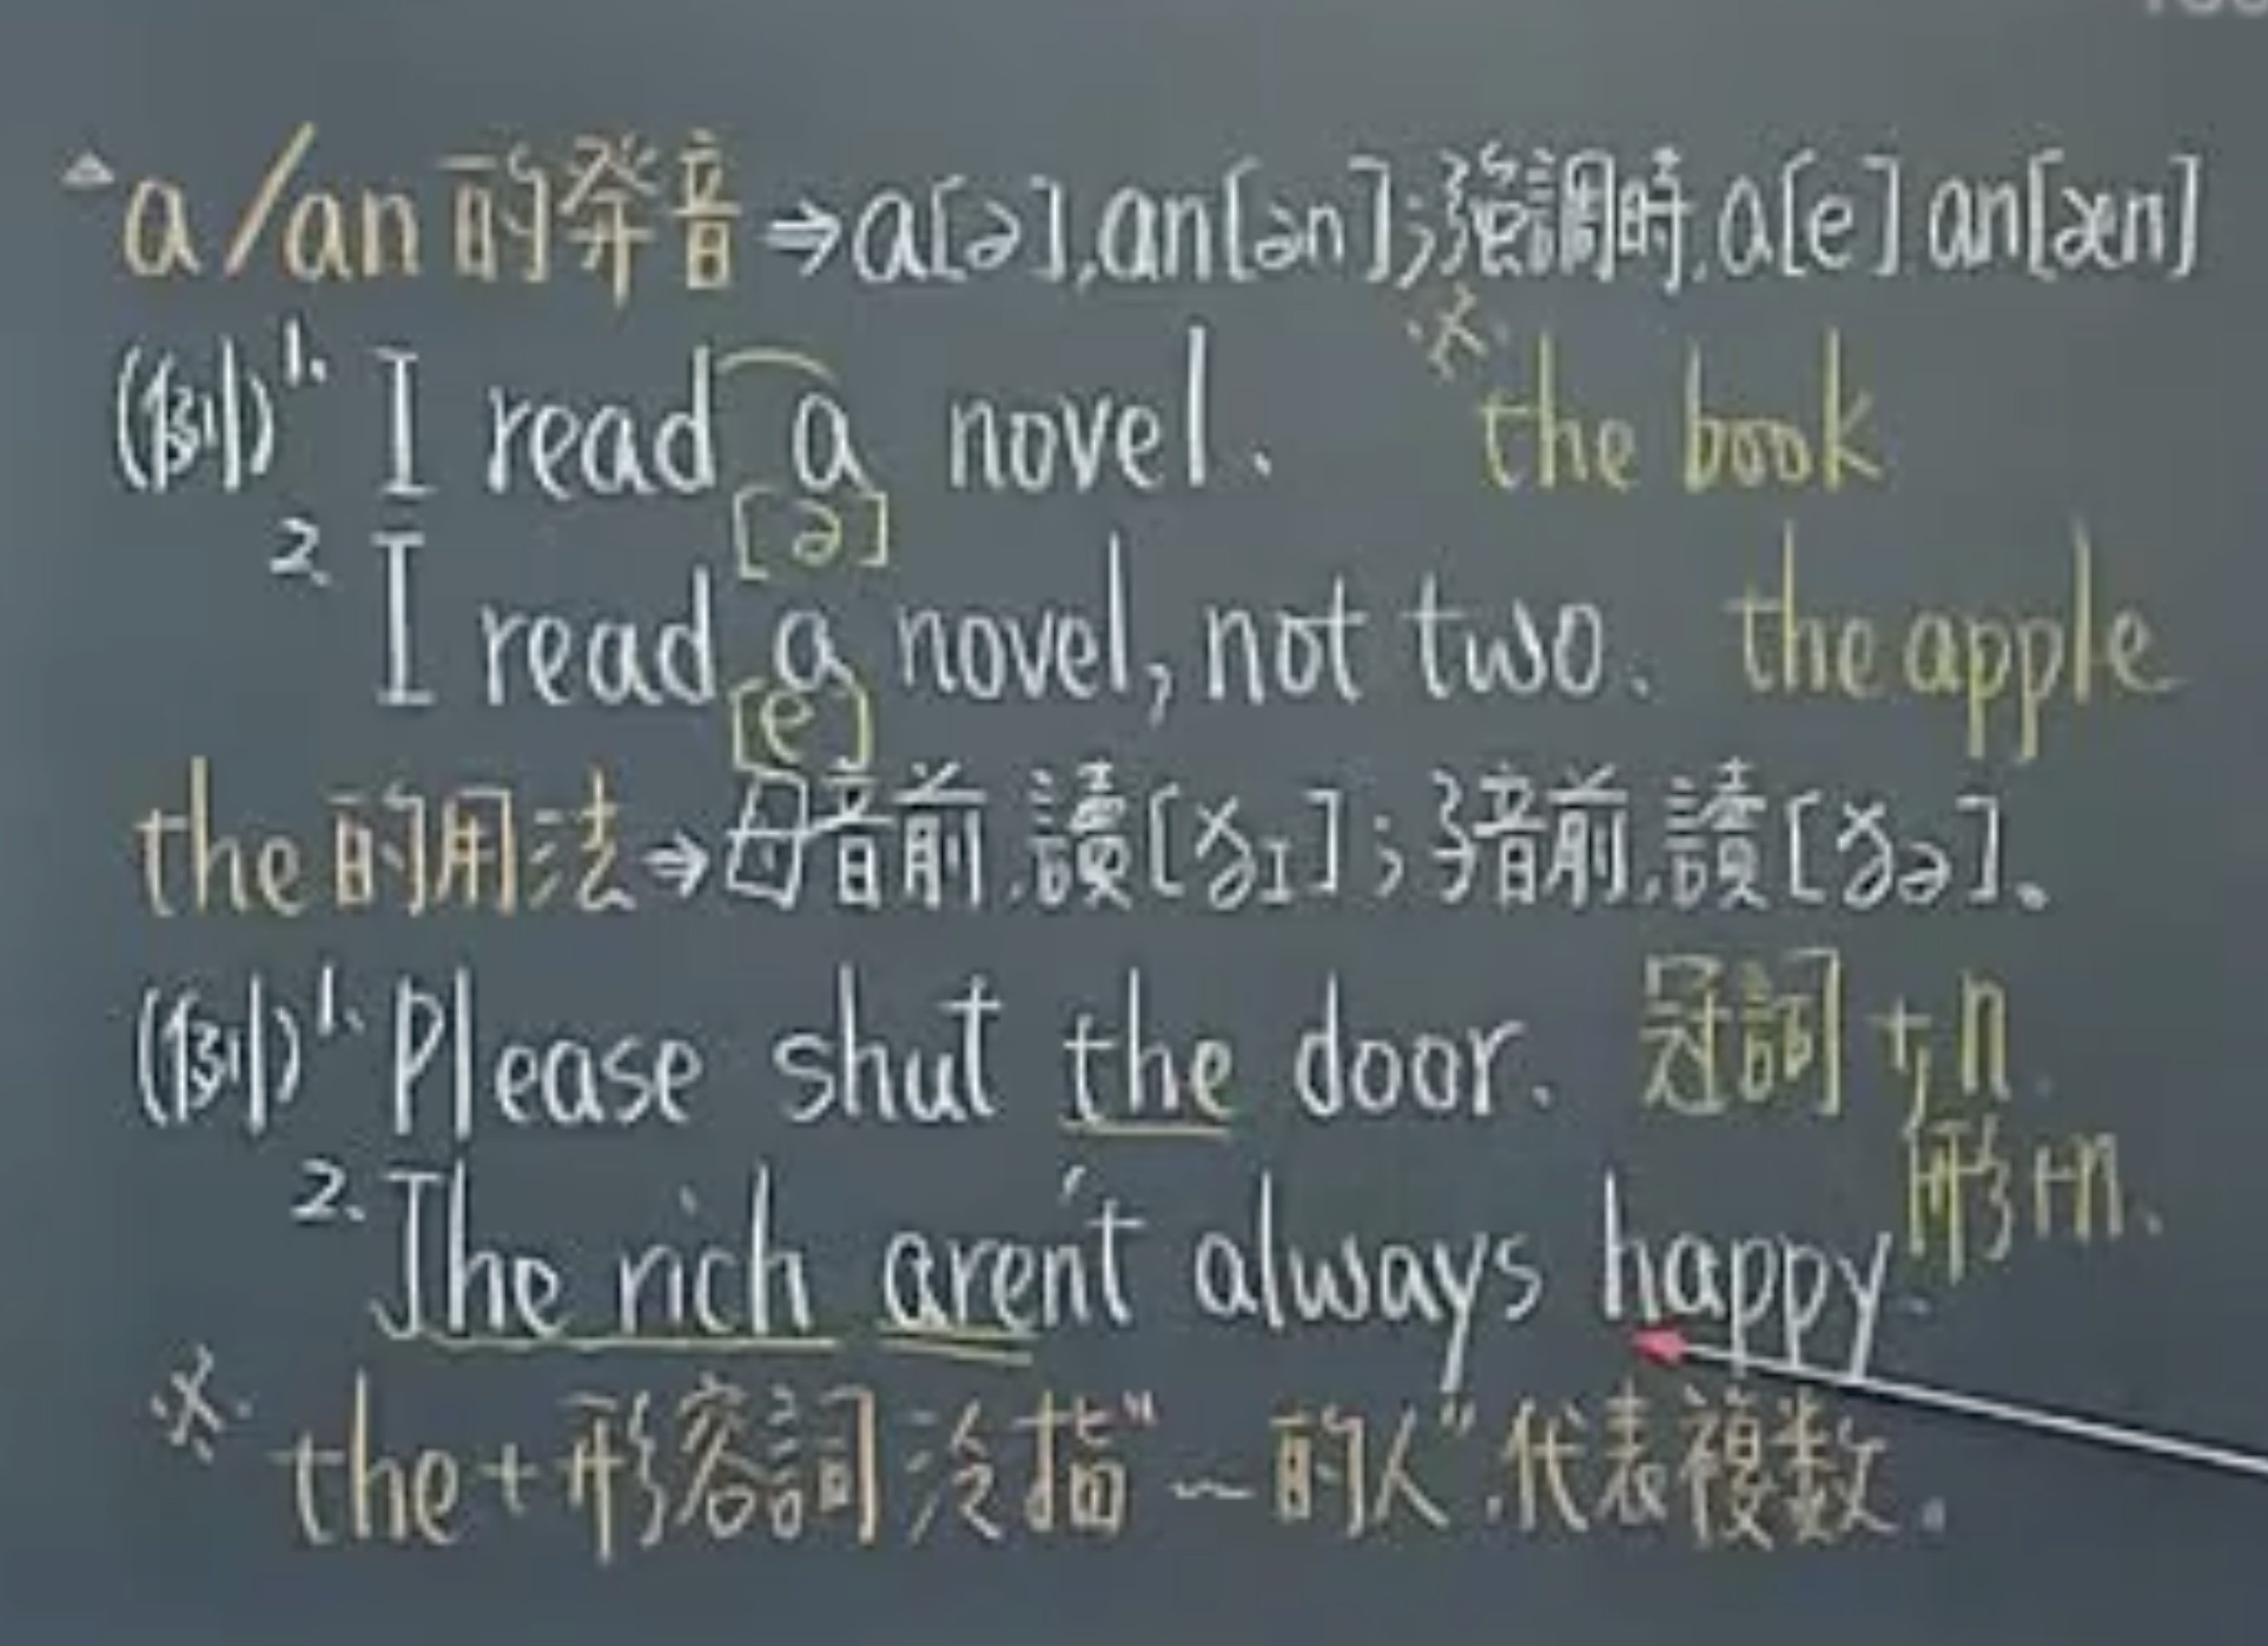 a/an 的発音⇒a[ə],an[ən];強調時,a[e] an[æn]
(例)1. I read a novel. ※ the book
[ə]
2. I read a novel, not two. the apple
[e]
the 的用法⇒母音前,讀[ðɪ];子音前,讀[ðə]。
(例)1. Please shut the door. 冠詞+n.
形+n.
2. The rich aren't always happy.
※ the+形容詞 泛指"~的人",代表複数。